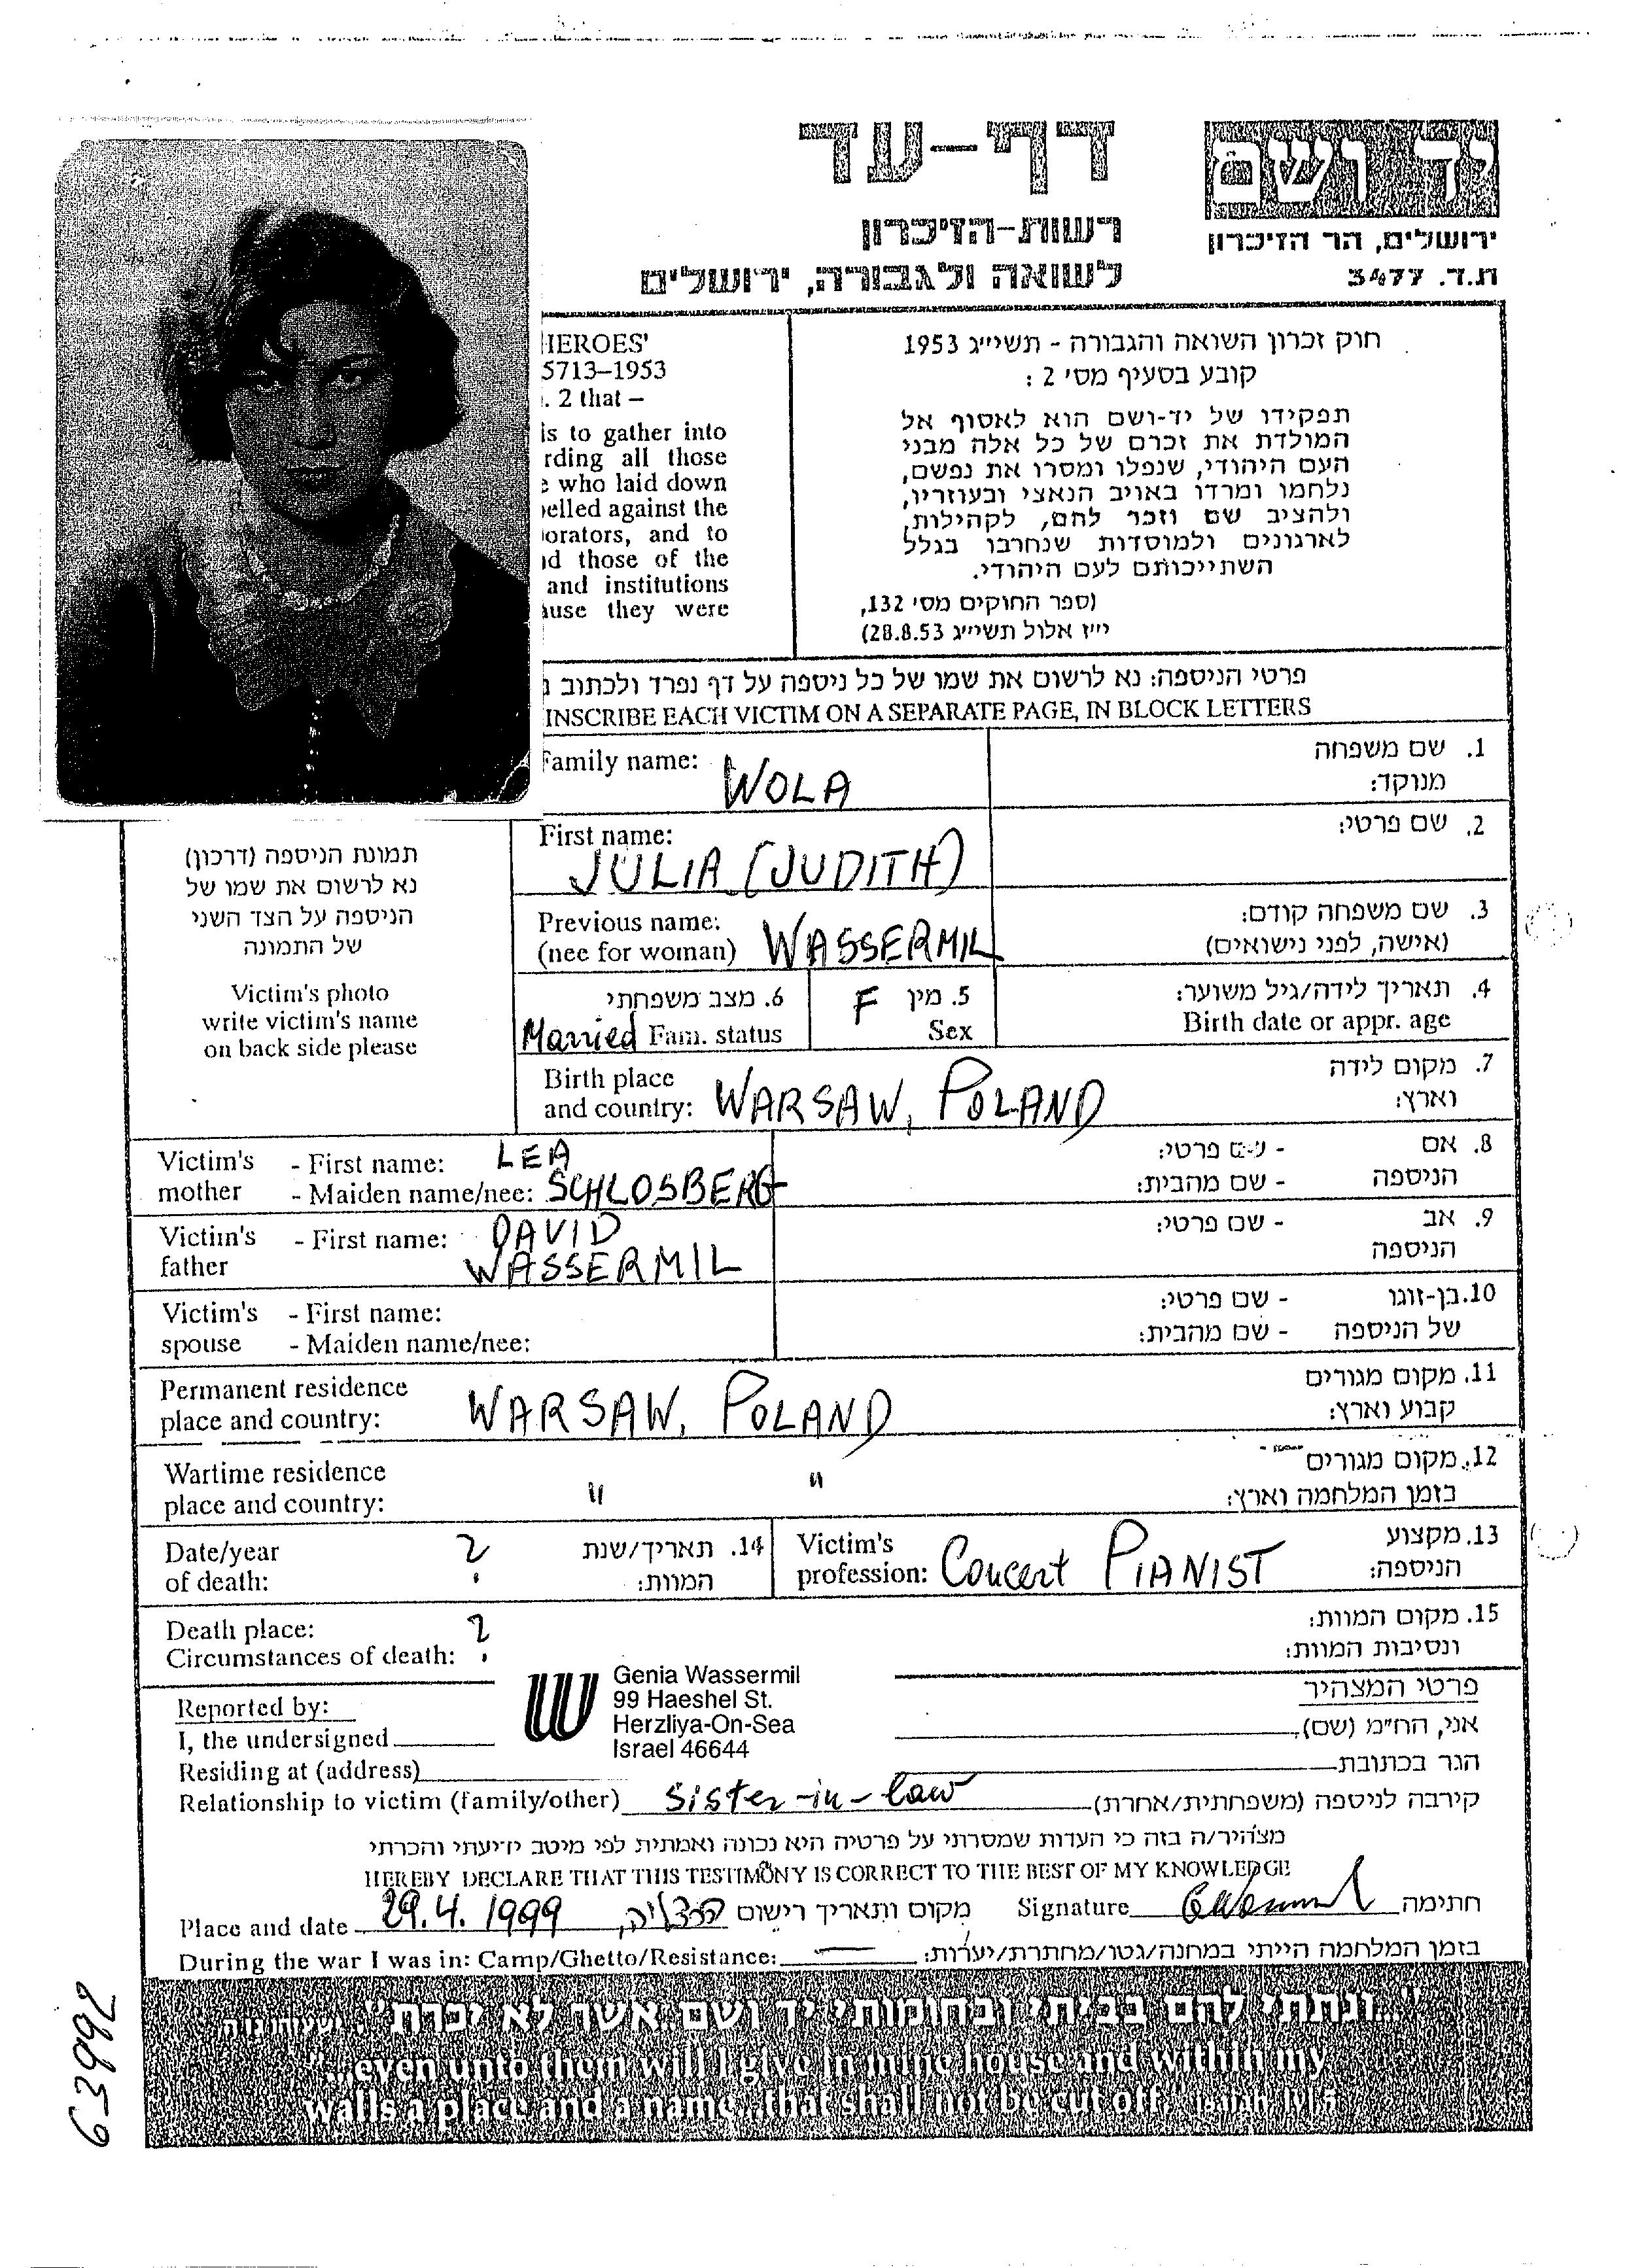 דף-עד
רשות-הזיכרון
לשואה ולגבורה, ירושלים
יד ושם
ירושלים, הר הזיכרון
ת.ד. 3477
HEROES'
5713–1953
. 2 that –
is to gather into
rding all those
who laid down
belled against the
orators, and to
nd those of the
and institutions
ause they were
חוק זכרון השואה והגבורה - תשי״ג 1953
קובע בסעיף מס׳ 2 :
תפקידו של יד-ושם הוא לאסוף אל
המולדת את זכרם של כל אלה מבני
העם היהודי, שנפלו ומסרו את נפשם,
נלחמו ומרדו באויב הנאצי ובעוזריו,
ולהציב שם וזכר להם, לקהילות,
לארגונים ולמוסדות שנחרבו בגלל
השתייכותם לעם היהודי.
(ספר החוקים מס׳ 132,
י״ז אלול תשי״ג 28.8.53)
פרטי הניספה: נא לרשום את שמו של כל ניספה על דף נפרד ולכתוב
INSCRIBE EACH VICTIM ON A SEPARATE PAGE, IN BLOCK LETTERS
Family name: WOLA
1. שם משפחה
מנוקד:
First name: JULIA (JUDITH)
2. שם פרטי:
Previous name:
(nee for woman) WASSERMIL
3. שם משפחה קודם:
(אישה, לפני נישואים)
תמונת הניספה (דרכון)
נא לרשום את שמו של
הניספה על הצד השני
של התמונה
Victim's photo
write victim's name
on back side please
6. מצב משפחתי
Married Fam. status
5. מין F
Sex
4. תאריך לידה/גיל משוער:
Birth date or appr. age
Birth place
and country: WARSAW, POLAND
7. מקום לידה
וארץ:
Victim's - First name: LEA
mother - Maiden name/nee: SCHLOSBERG
8. אם - שם פרטי:
הניספה - שם מהבית:
Victim's - First name: DAVID
father WASSERMIL
9. אב - שם פרטי:
הניספה
Victim's - First name:
spouse - Maiden name/nee:
10. בן-זוגו - שם פרטי:
של הניספה - שם מהבית:
Permanent residence
place and country: WARSAW, POLAND
11. מקום מגורים
קבוע וארץ:
Wartime residence
place and country: " "
12. מקום מגורים
בזמן המלחמה וארץ:
Date/year
of death: ?
14. תאריך/שנת
המוות:
Victim's
profession: Concert PIANIST
13. מקצוע
הניספה:
Death place: ?
Circumstances of death:
15. מקום המוות:
ונסיבות המוות:
W
Genia Wassermil
99 Haeshel St.
Herzliya-On-Sea
Israel 46644
Reported by:
פרטי המצהיר
I, the undersigned
אני, הח״מ (שם)
Residing at (address)
הגר בכתובת
Relationship to victim (family/other) Sister-in-law קירבה לניספה (משפחתית/אחרת)
מצהיר/ה בזה כי העדות שמסרתי על פרטיה היא נכונה ואמתית לפי מיטב ידיעתי והכרתי
HEREBY DECLARE THAT THIS TESTIMONY IS CORRECT TO THE BEST OF MY KNOWLEDGE
Place and date 29.4.1999 הרצליה, מקום ותאריך רישום Signature חתימה
During the war I was in: Camp/Ghetto/Resistance: — בזמן המלחמה הייתי במחנה/גטו/מחתרת/יערות:
"...ונתתי להם בביתי ובחומותי יד ושם..אשר לא יכרת"
"...even unto them will I give in mine house and within my
walls a place and a name...that shall not be cut off." Isaiah lvi 5
63992